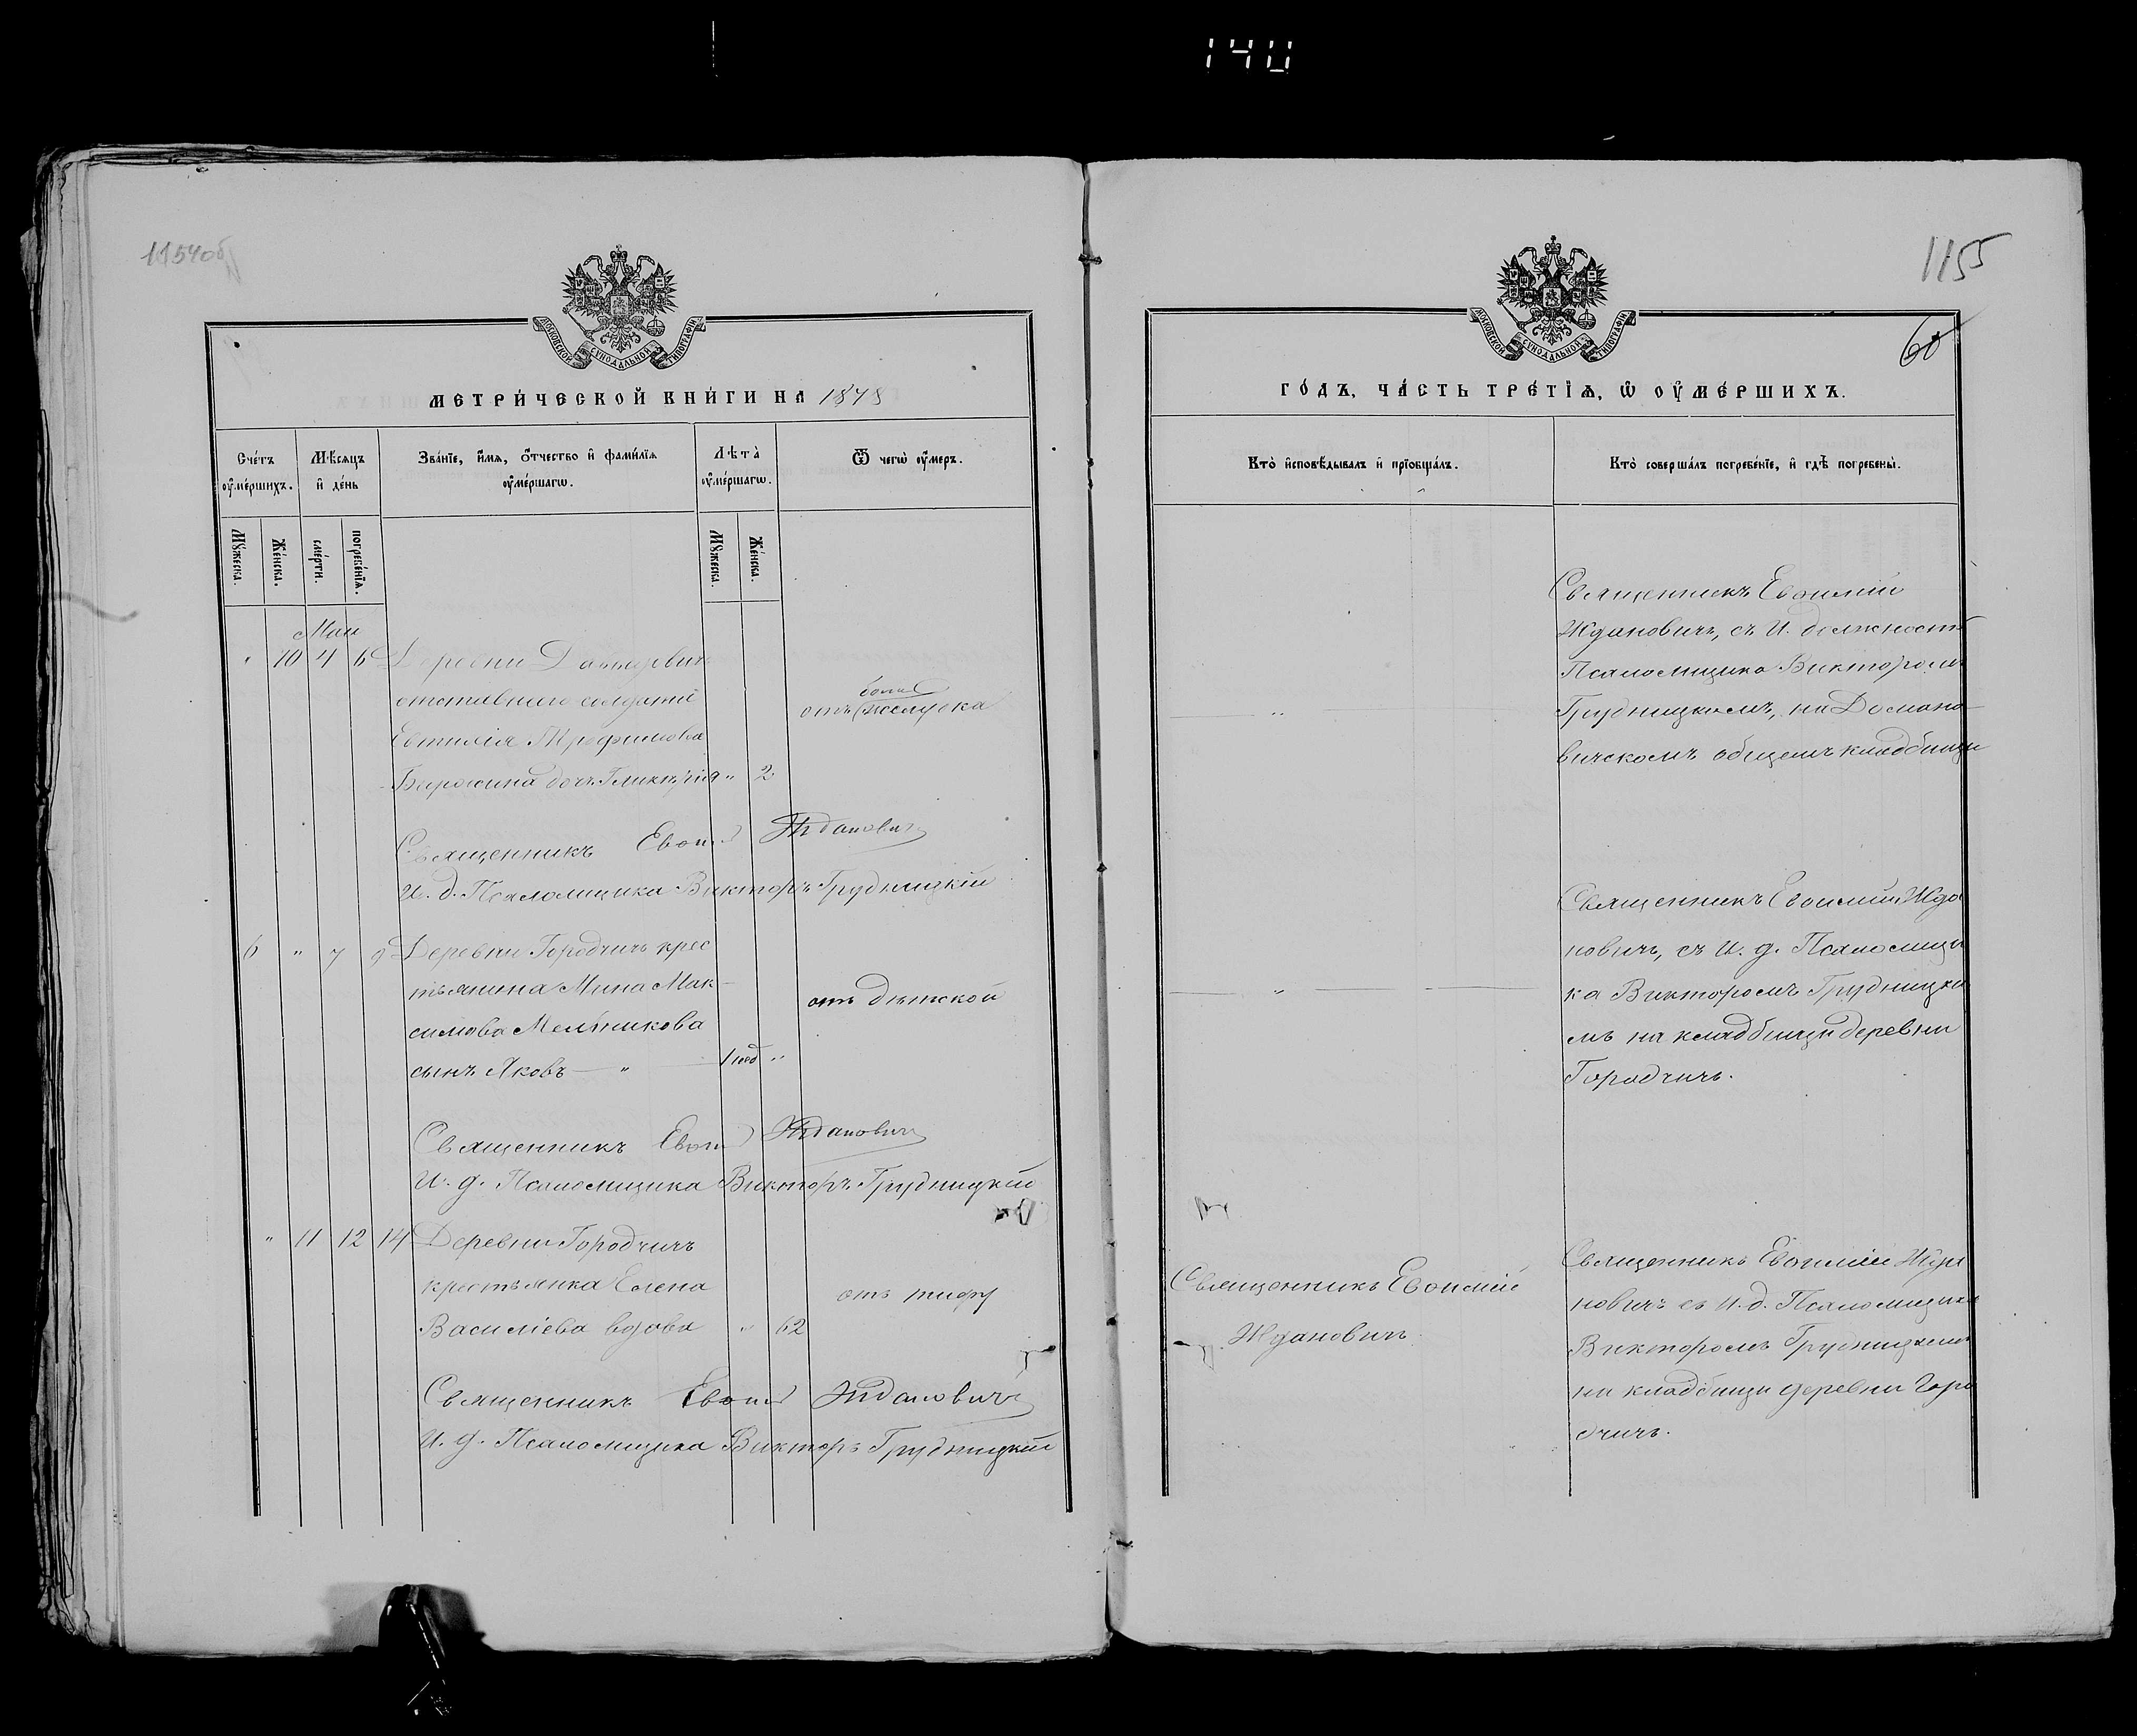 140
1154об
МОСКОВСКОЙ СУНОДАЛЬНОЙ ТИПОГРАФІИ
МЕТРИ́ЧЕСКОЙ КНИ́ГИ НА 1878
Сче́тъ оу҆ме́ршихъ.
Мѣ́сяцъ и҆ де́нь
Зва́нїе, и҆́мя, ѻ҆́тчество и҆ фами́лїя оу҆ме́ршагѡ.
Лѣ́та оу҆ме́ршагѡ.
Ѿ чегѡ̀ оу҆́меръ.
Мꙋ́жеска.
Же́нска.
сме́рти.
погребе́нїя.
Мꙋ́жеска.
Же́нска.
Маи
" 10 4 6 Деревни
отставнаго солдата
Евтихія Трофимова
дочь Гликерія " 2
боли
отъ желудка
Священникъ Евѳим Ждановичъ
И. д. Псаломщика Викторъ Грудницкій
6 " 7 9 Деревни Городчичъ крес
тьянина Мина Мак-
симова Мельникова
сынъ Яковъ — " — 1 год "
отъ дѣтской
Священникъ Евѳим Ждановичъ
И. д. Псаломщика Викторъ Грудницкій
" 11 12 14 Деревни Городчичъ
крестьянка Елена
Василіева вдова " 62
отъ тифу
Священникъ Евѳим Ждановичъ
И. д. Псаломщика Викторъ Грудницкій
1155
60
МОСКОВСКОЙ СУНОДАЛЬНОЙ ТИПОГРАФІИ
ГО́ДЪ, ЧА́СТЬ ТРЕ́ТЇѦ, Ѡ҆ ОУ҆МЕ́РШИХЪ.
Кто̀ и҆сповѣ́дывалъ и҆ прїѡбща́лъ.
Кто̀ соверша́лъ погребе́нїе, и҆ гдѣ̀ погребены̀.
"
Священникъ Евѳимій
Ждановичъ, съ И. должность
Псаломщика Викторомъ
Грудницкимъ, на Домано-
вичскомъ общемъ кладбищи
"
Священникъ Евѳимій Жда
новичъ, съ И. д. Псаломщи
ка Викторомъ Грудницки
мъ на кладбищи деревни
Городчичъ.
Священникъ Евѳимій
Ждановичъ
Священникъ Евѳимій Жда
новичъ съ И. д. Псаломщика
Викторомъ Грудницкимъ
на кладбищи деревни Горо
дчичъ.